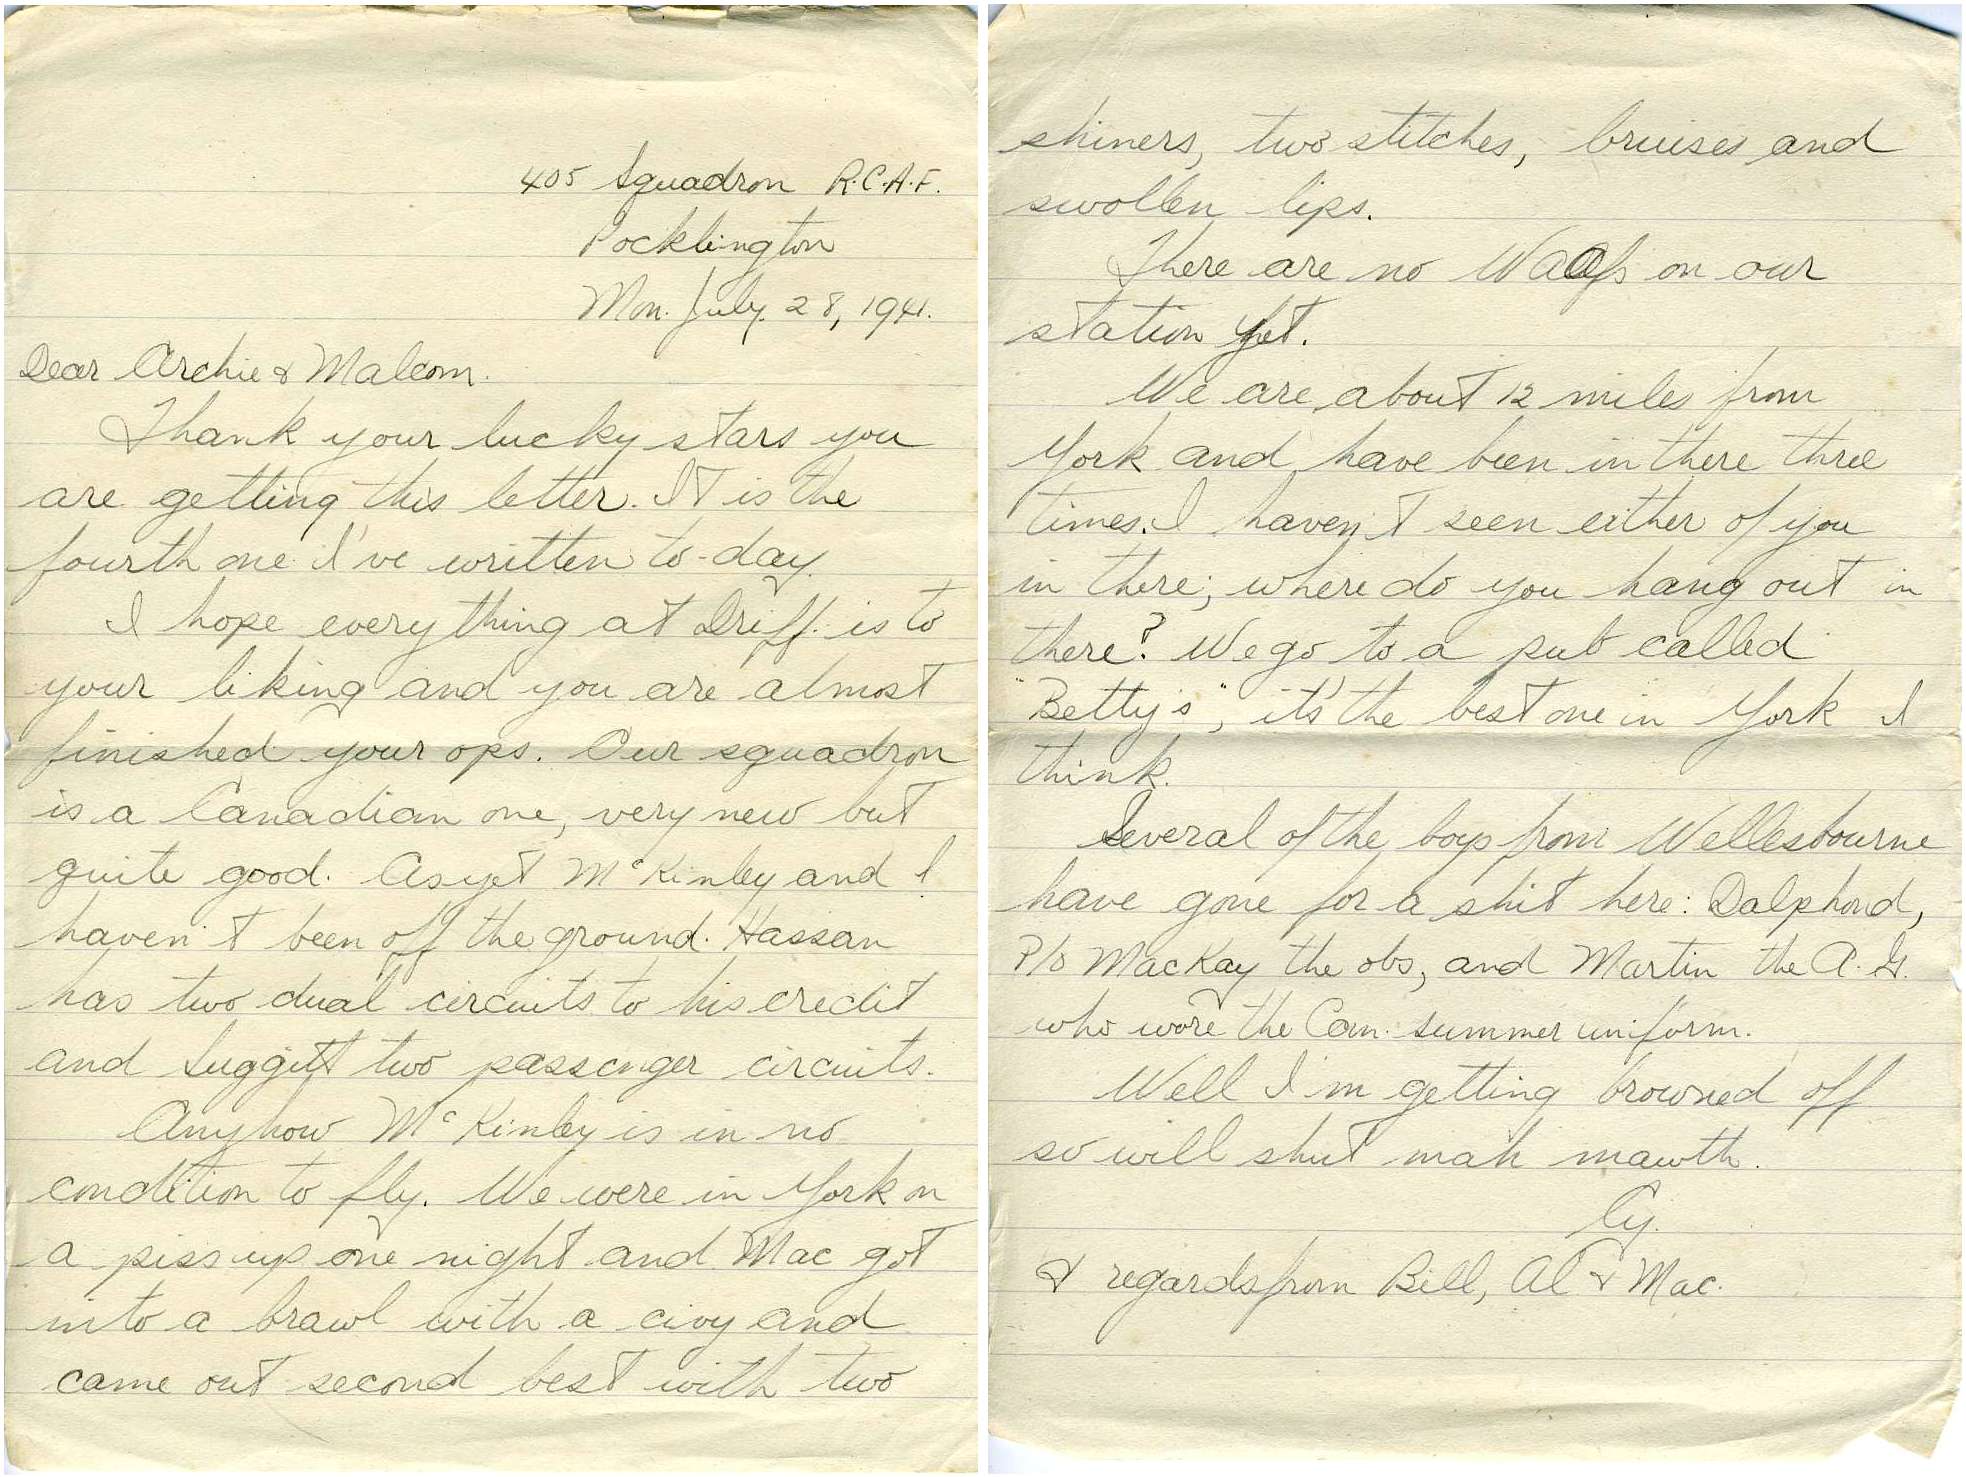 405 Squadron R.C.A.F.
Pocklington
Mon. July. 28, 1941.
Dear Archie & Malcom.
Thank your lucky stars you
are getting this letter. It is the
fourth one I've written to-day.
I hope everything at Driff. is to
your liking and you are almost
finished your ops. Our squadron
is a Canadian one, very new but
quite good. As yet McKinley and I
haven't been off the ground. Hassan
has two dual circuits to his credit
and Suggitt two passenger circuits.
Anyhow McKinley is in no
condition to fly. We were in York on
a piss up one night and Mac got
into a brawl with a civy and
came out second best with two
shiners, two stitches, bruises and
swollen lips.
There are no Waafs on our
station yet.
We are about 12 miles from
York and have been in there three
times. I haven't seen either of you
in there; where do you hang out in
there? We go to a pub called
"Betty's", it's the best one in York I
think.
Several of the boys from Wellesbourne
have gone for a shit here: Dalphond,
P/O MacKay the obs, and Martin the A.G.
who wore the Can. summer uniform.
Well I'm getting browned off
so will shut mah mawth.
Cy.
& regards from Bill, Al & Mac.